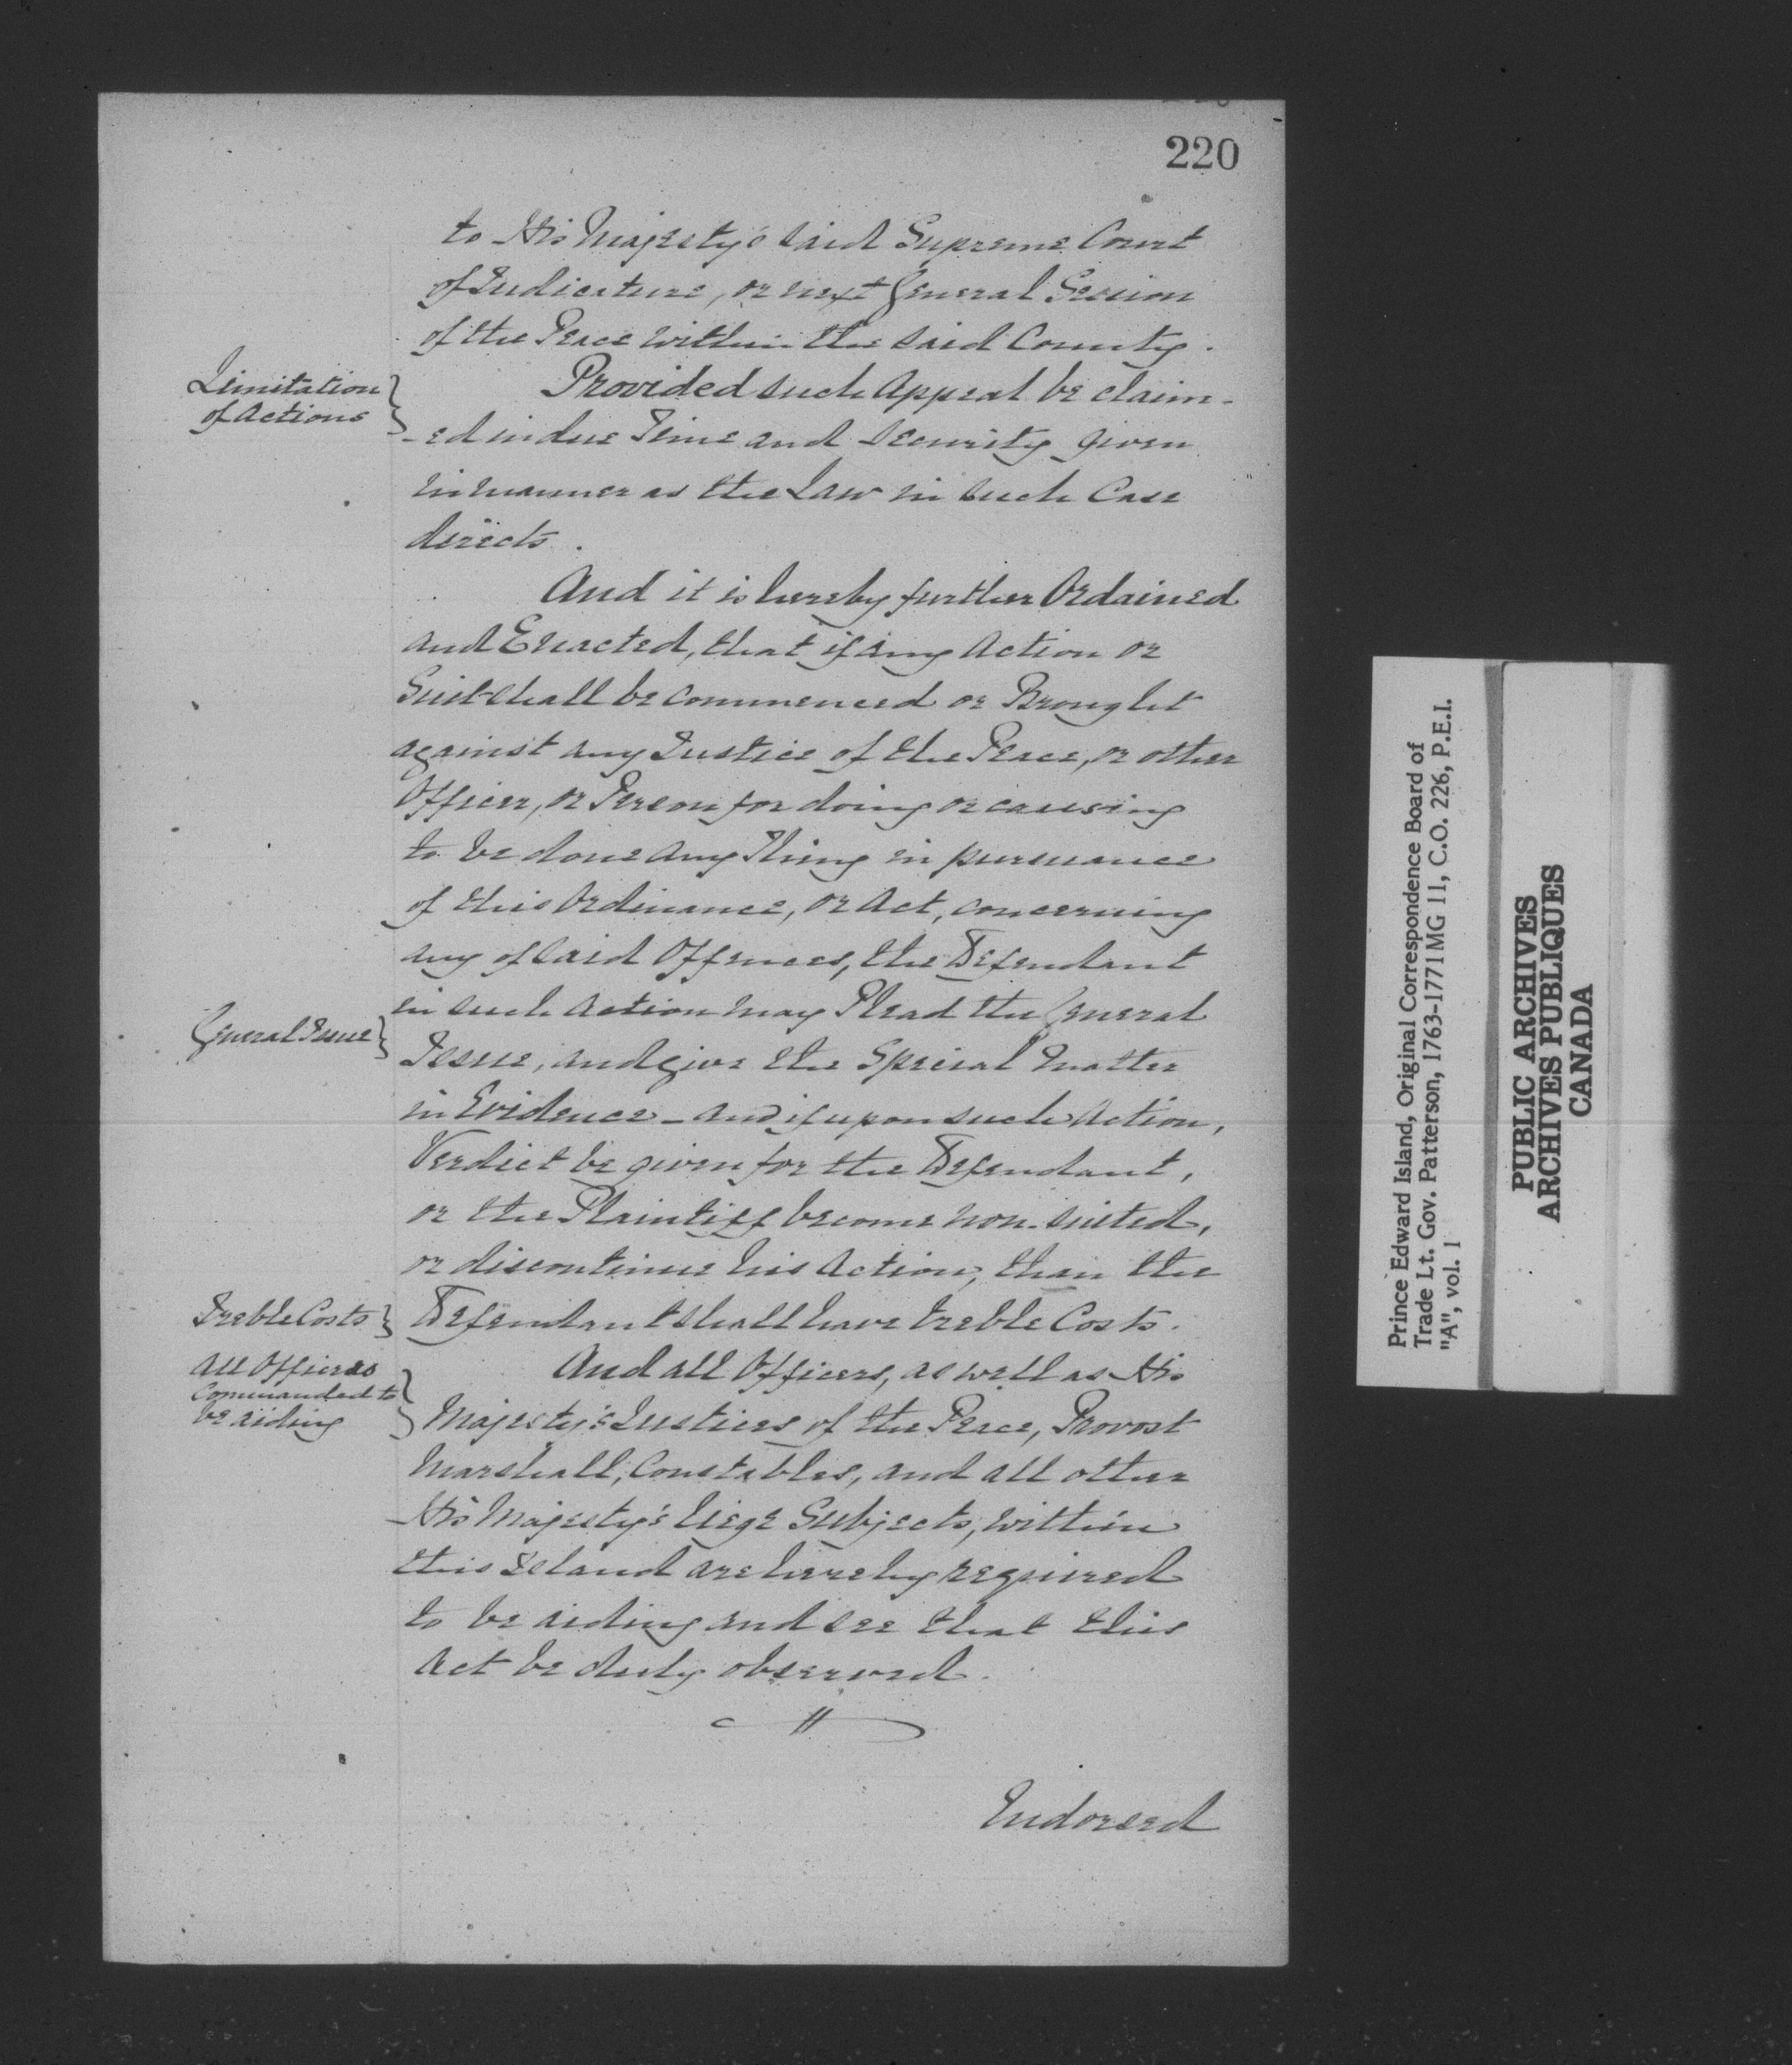 220
to His Majesty's said Supreme Court
of Judicature, or next General Session
of the Peace within the said County.
Limitation
of Actions
Provided such Appeal be claim-
-ed in due Time and Security given
in manner as the Law in such Case
directs.
And it is hereby further Ordained
and Enacted, that if any Action or
Suit shall be commenced or Brought
against any Justice of the Peace, or other
Officer, or Person for doing or causing
to be done any Thing in pursuance
of this Ordinance, or Act, concerning
any of said Offences, the Defendant
in such Action may Plead the General
General Issue
Issue, and give the Special Matter
in Evidence - and if upon such Action,
Verdict be given for the Defendant,
or the Plaintiff become non-suited,
or discontinue his Action, than the
Treble Costs
Defendant shall have treble Costs.
All Officers
Commanded to
be aiding
And all Officers, as well as His
Majesty's Justices of the Peace, Provost
Marshall, Constables, and all other
His Majesty's liege Subjects, within
this Island are hereby required
to be aiding and see that this
Act be duly observed.
Endorsed
Prince Edward Island, Original Correspondence Board of
Trade Lt. Gov. Patterson, 1763-1771MG 11, C.O. 226, P.E.I.
"A", vol. 1
PUBLIC ARCHIVES
ARCHIVES PUBLIQUES
CANADA